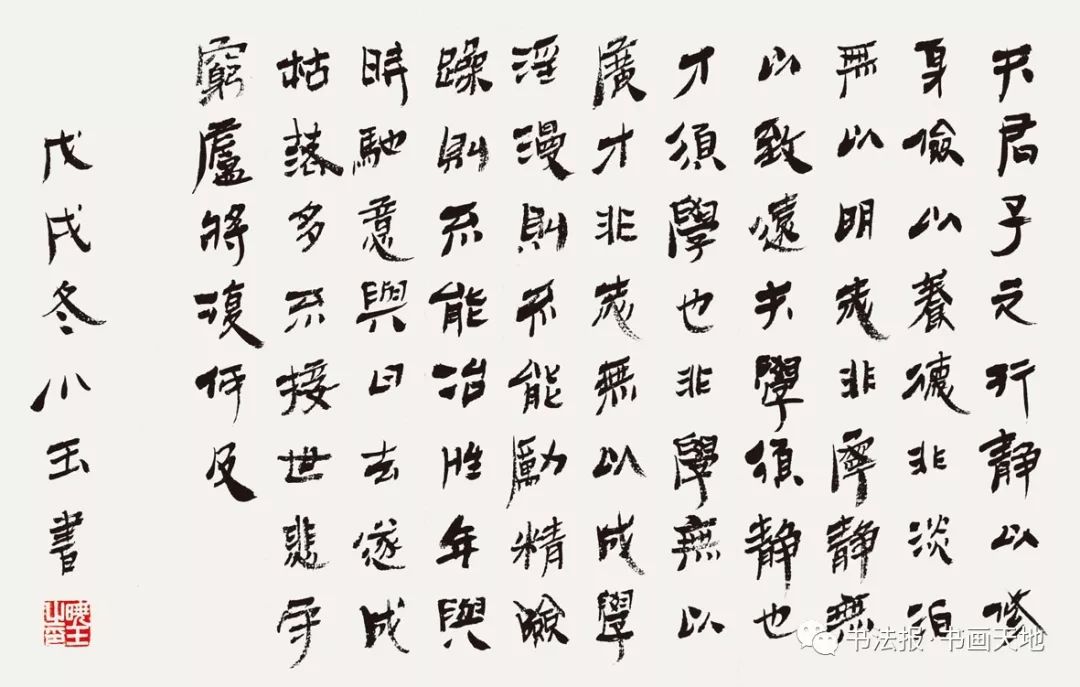 夫君子之行静以修
身儉以養德非淡泊
無以明志非寧静無
以致遠夫學須静也
才須學也非學無以
廣才非志無以成學
淫漫則不能勵精險
躁則不能冶性年與
時馳意與日去遂成
枯落多不接世悲守
窮廬將復何及
戊戌冬小玉書
书法报·书画天地